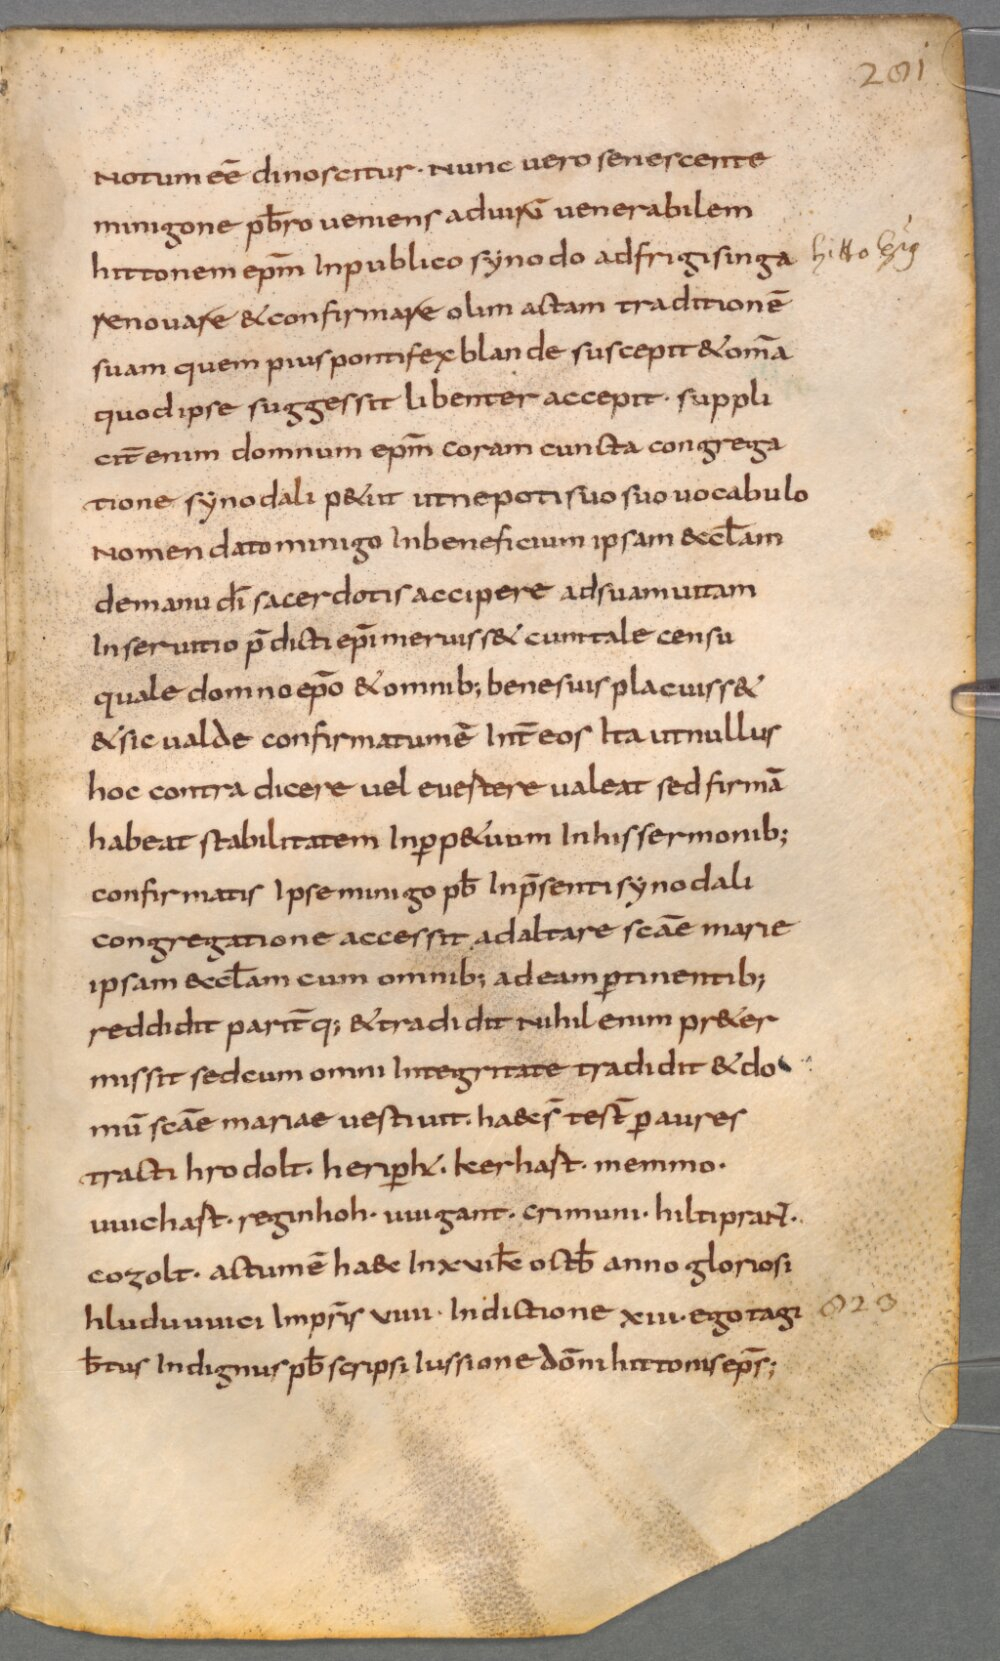 201
notum eē dinoscitur. nunc vero senescente
minigone pb̄ro veniens ad virū venerabilem
hittonem ep̄m In publico synodo ad frigisinga
hitto
renovare & confirmare olim actam traditionē
suam quem pius pontifex blande suscepit & om̄a
quod ipse suggessit libenter accepit. suppli
cit̄ enim domnum ep̄m coram cuncta congrega
tione synodali p&iit ut nepoti suo suo vocabulo
nomen dato minigo In beneficium ipsam &ccl̄am
de manu dī sacerdotis accipere ad suam vitam
In servitio p̄dicti ep̄i meruiss& cum tale censu
quale domno ep̄o & omnib; bene suis placuiss&
& sic valde confirmatum ē Int̄ eos Ita ut nullus
hoc contra dicere vel evestere valeat sed firmā
habeat stabilitatem In p̄p&uum In his sermonib;
confirmatis Ipse minigo pb̄ In p̄senti synodali
congregatione accessit ad altare sc̄ae marie
ipsam &ccl̄am cum omnib; ad eam p̄tinentib;
reddidit parit̄q; & tradidit nihil enim pr&er
missit sed cum omni Integritate tradidit & do
mū sc̄ae mariae vestivit. ha&c s̄ test̄ p̄ aures
tracti hrodolt. herip̄ht. kerhast. memmo.
uuichast. reginhoh. uuigant. crimuni. hiltiprant.
cozolt. actum ē ha&c In xvi kl̄ octb̄ anno gloriosi
hluduuuici Imp̄ris viiii. Indictione xiii. ego tagi
823
b̄tus Indignus pb̄ scripsi Iussione dōm hittonis ep̄s;